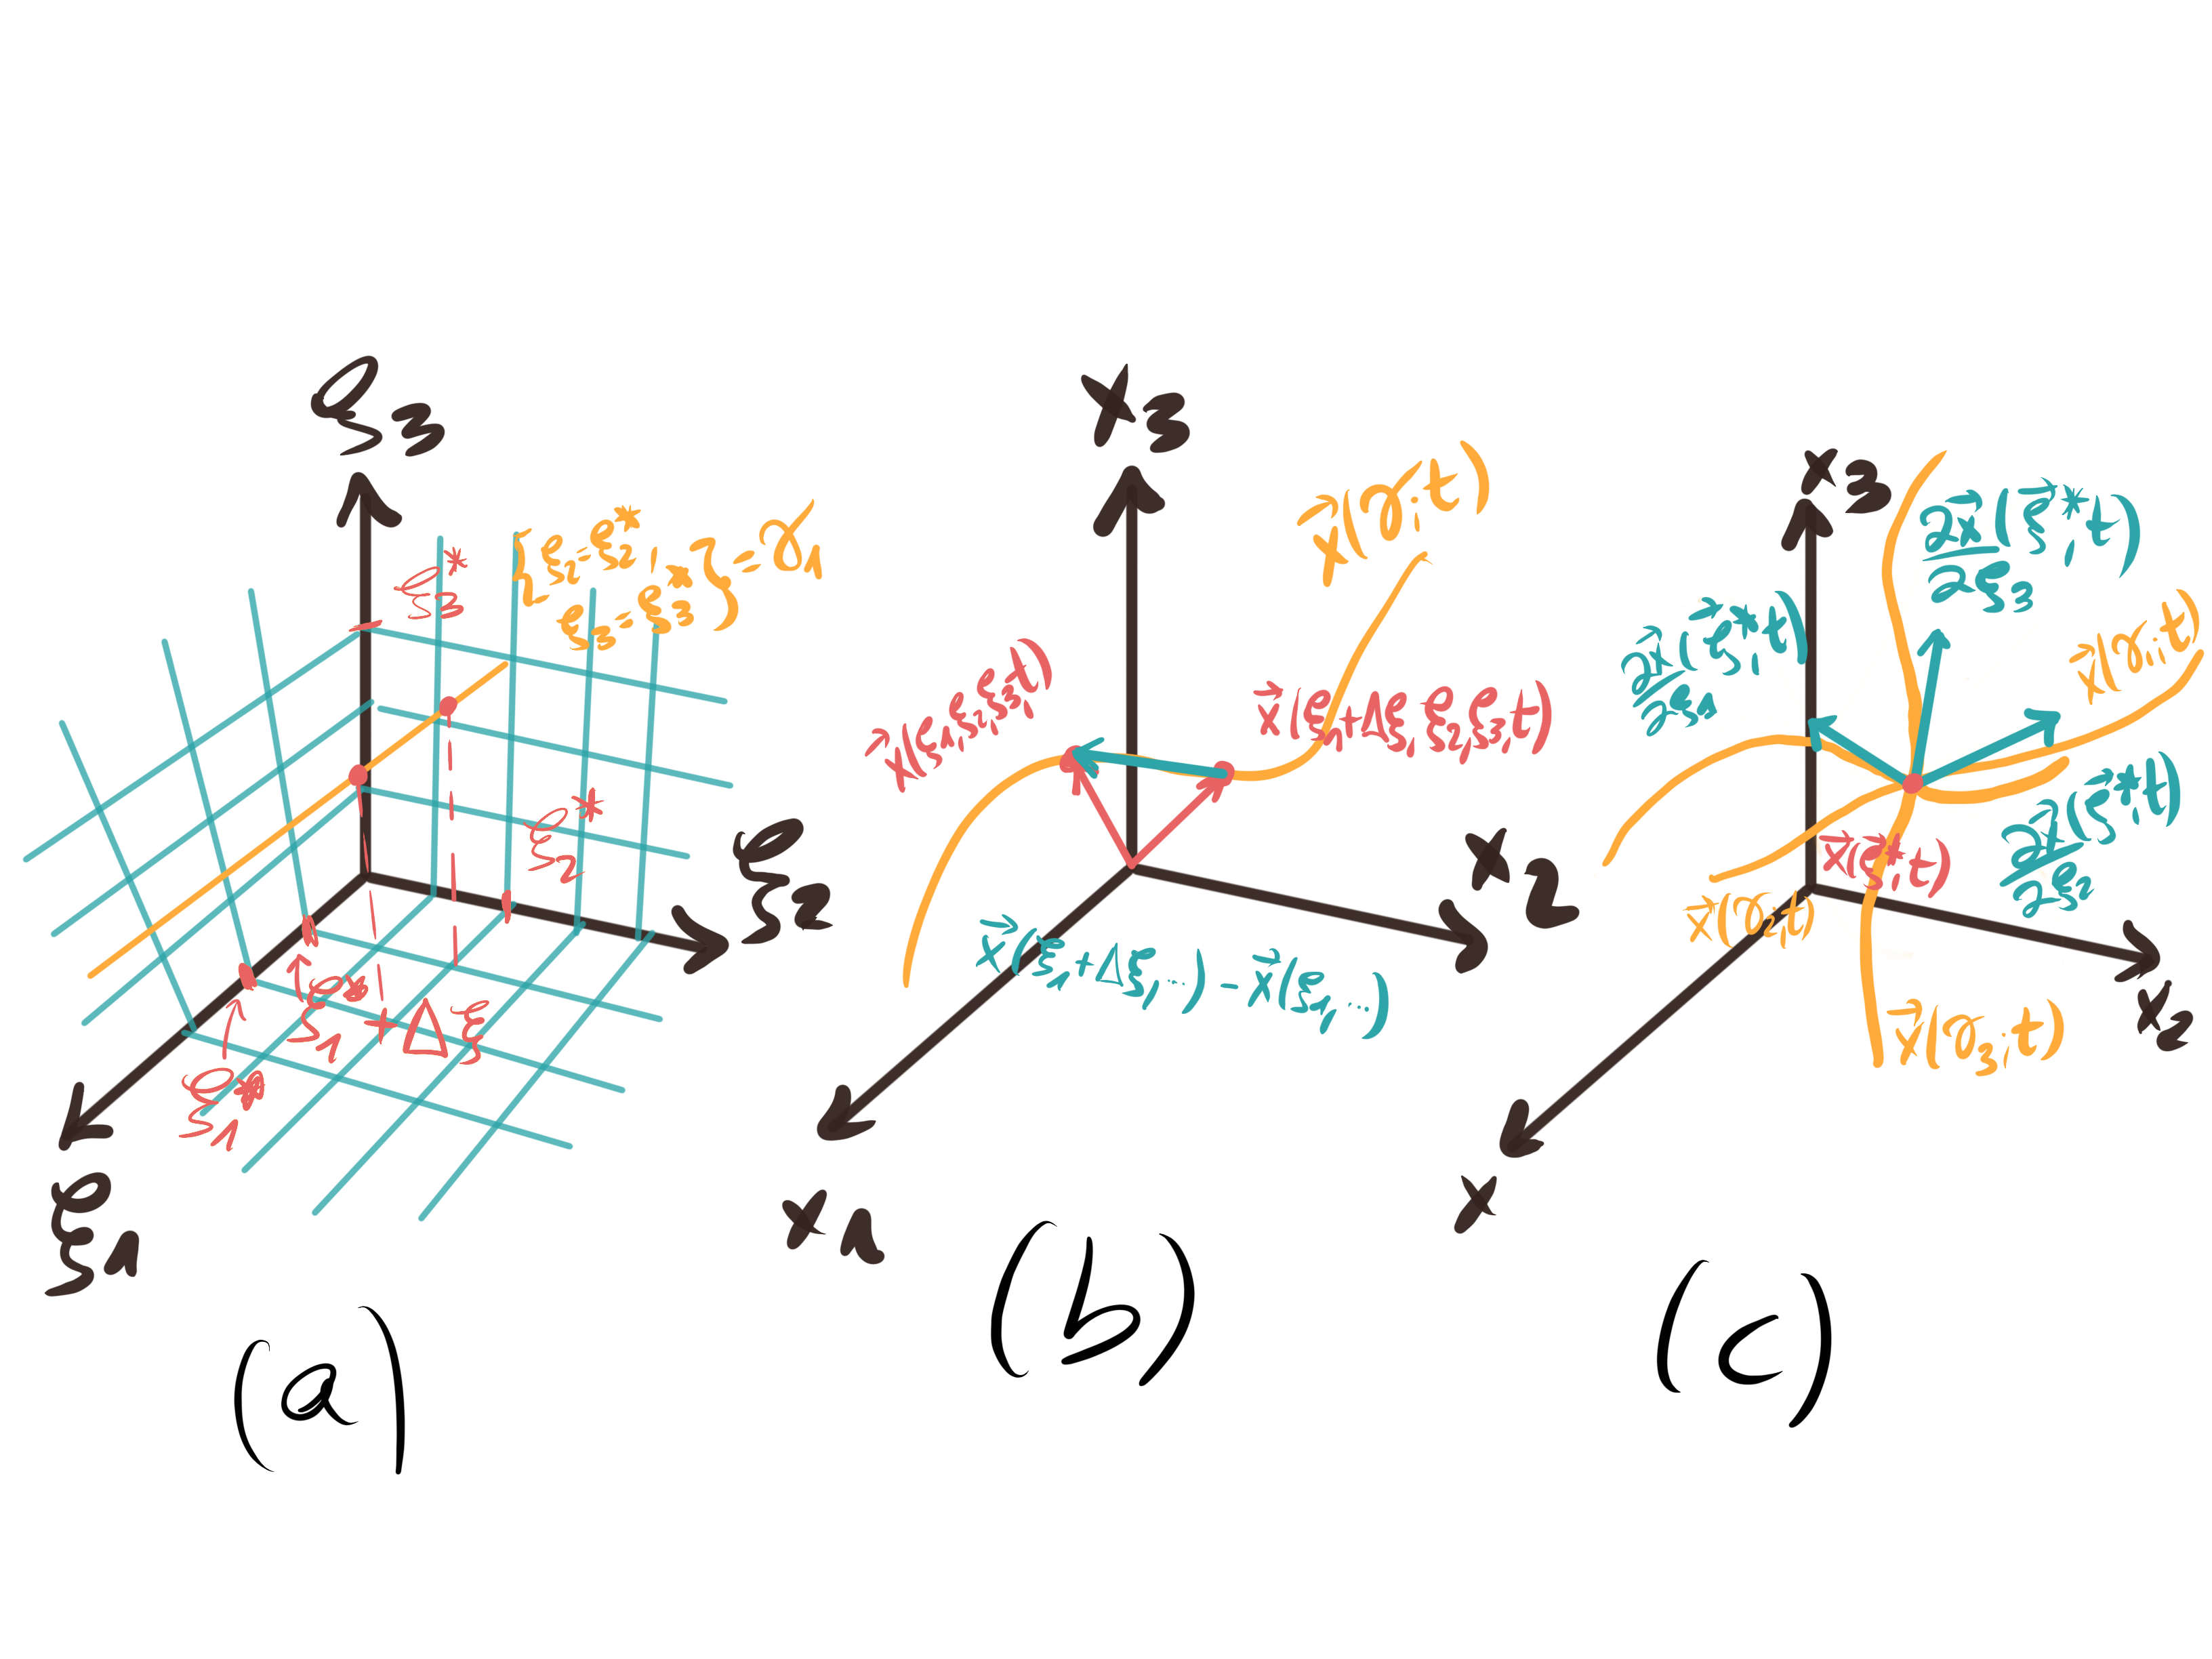 ξ₃
ξ₃*
{ξ₂=ξ₂*,
ξ₃=ξ₃*}=γ₁
ξ₂*
ξ₂
ξ₁*+Δξ
ξ₁*
ξ₁
(a)
x₃
x⃗(γ₁,t)
x⃗(ξ₁,ξ₂,ξ₃,t)
x⃗(ξ₁+Δξ,ξ₂,ξ₃,t)
x₂
x⃗(ξ₁+Δξ,...)-x⃗(ξ₁,...)
x₁
(b)
x₃
∂x⃗/∂ξ₃(ξ⃗*,t)
∂x⃗/∂ξ₁(ξ⃗*,t)
x⃗(γ₁,t)
∂x⃗/∂ξ₂(ξ⃗*,t)
x⃗(ξ⃗*,t)
x⃗(γ₂,t)
x₂
x⃗(γ₃,t)
x
(c)